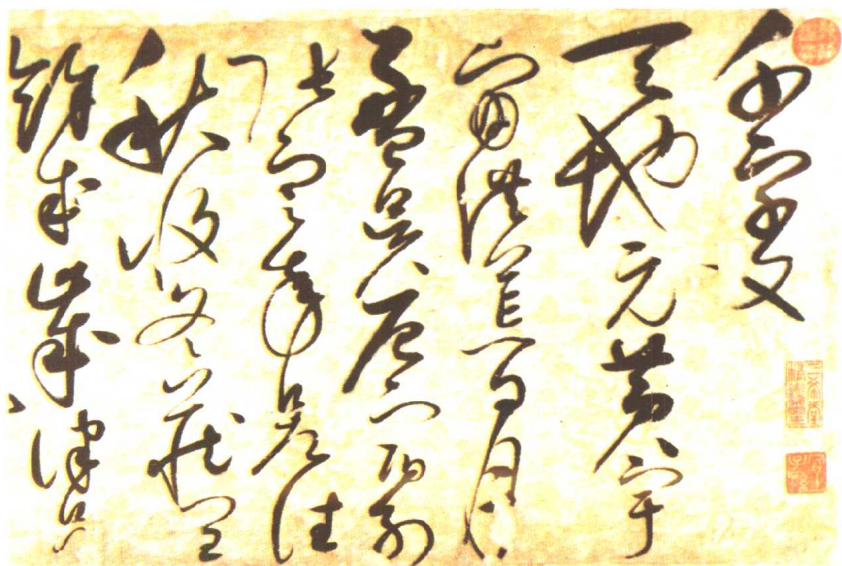 千字文
天地元黄宇
宙洪荒日月
盈昃辰宿列
張寒来暑往
秋收冬藏閏
餘成歲律吕